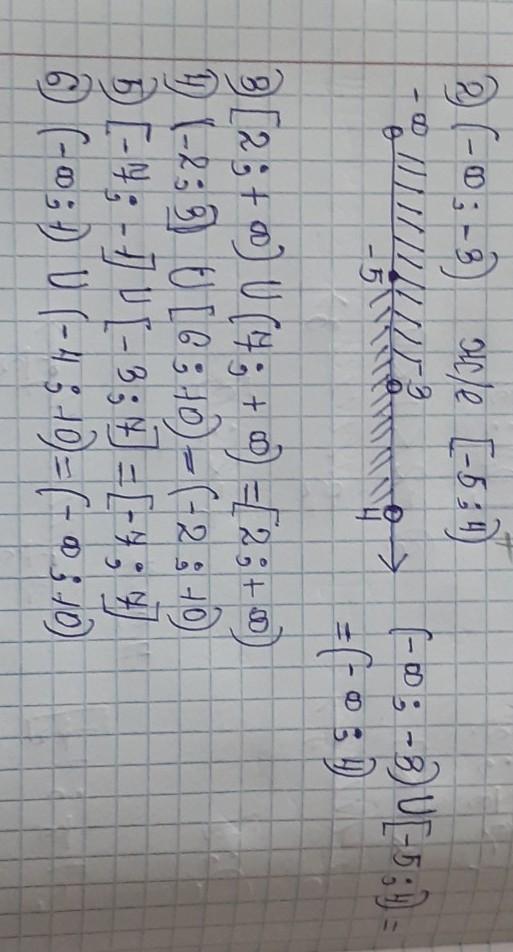 2) (-∞; -3) ж/е [-5; 4)
(-∞; -3) ∪ [-5; 4) =
= (-∞; 4)
-∞ -5 -3 4
3) [2; +∞) ∪ (7; +∞) = [2; +∞)
4) (-2; 9] ∪ [6; 10) = (-2; 10)
5) [-7; -1] ∪ [-3; 7] = [-7; 7]
6) (-∞; 1) ∪ (-4; 10) = (-∞; 10)